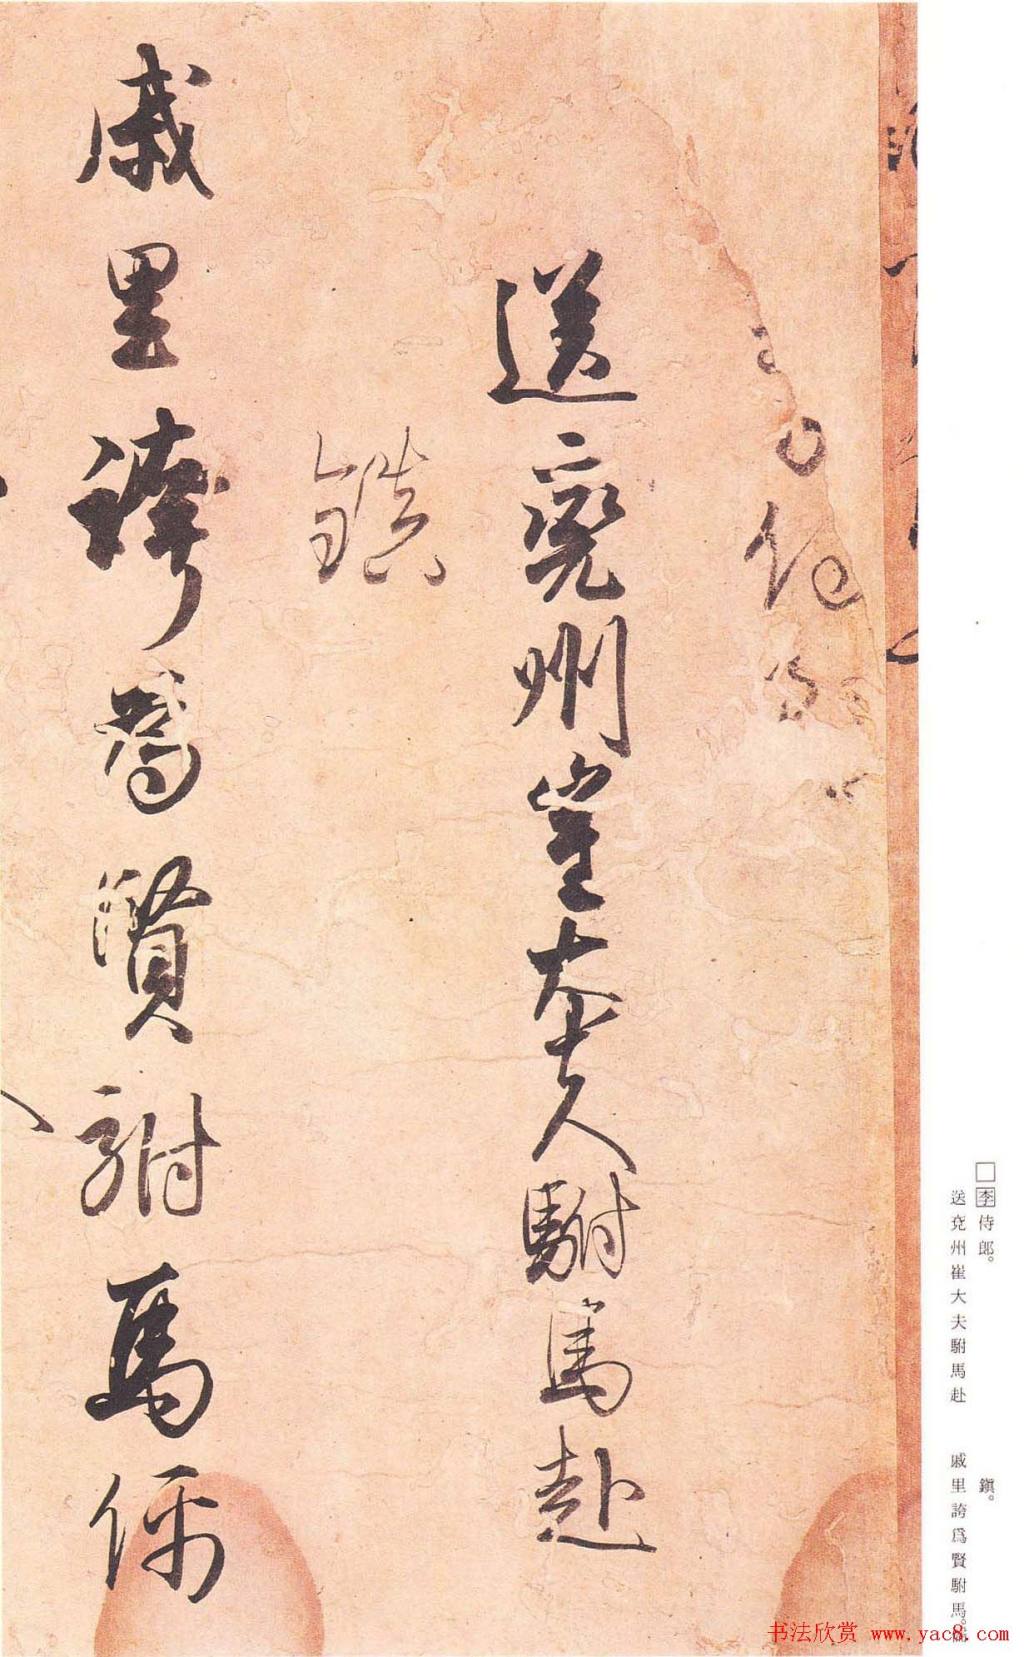 侍
送兗州崔大夫駙馬赴
鎮
戚里誇為賢駙馬儒
□李侍郎。
送兗州崔大夫駙馬赴
鎮。
戚里誇爲賢駙馬。
书法欣赏 www.yac8.com